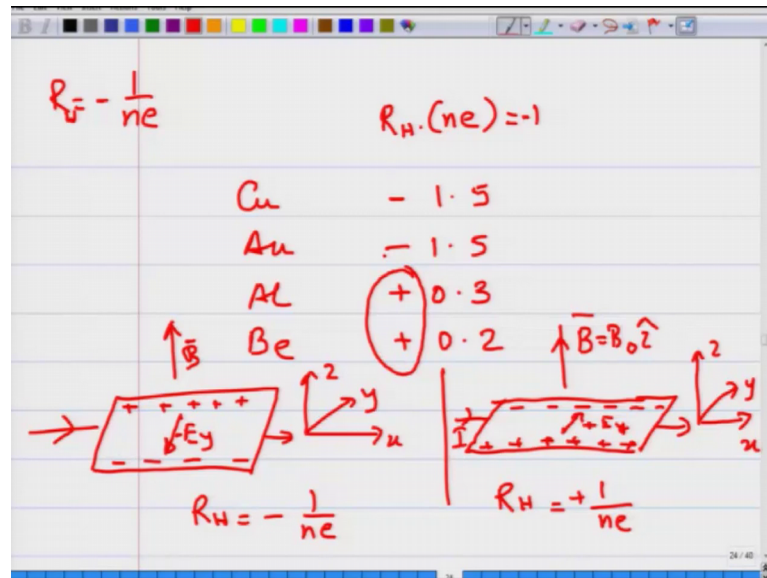 R_H = - 1/ne
R_H. (ne) = -1
Cu - 1.5
Au - 1.5
Al + 0.3
Be + 0.2
B̄
+ + + + +
-Ey
- - - - -
z
y
x
R_H = - 1/ne
B̄ = B₀ ẑ
I
- - - - - - -
+Ey
+ + + + + +
z
y
x
R_H = + 1/ne
24 / 40